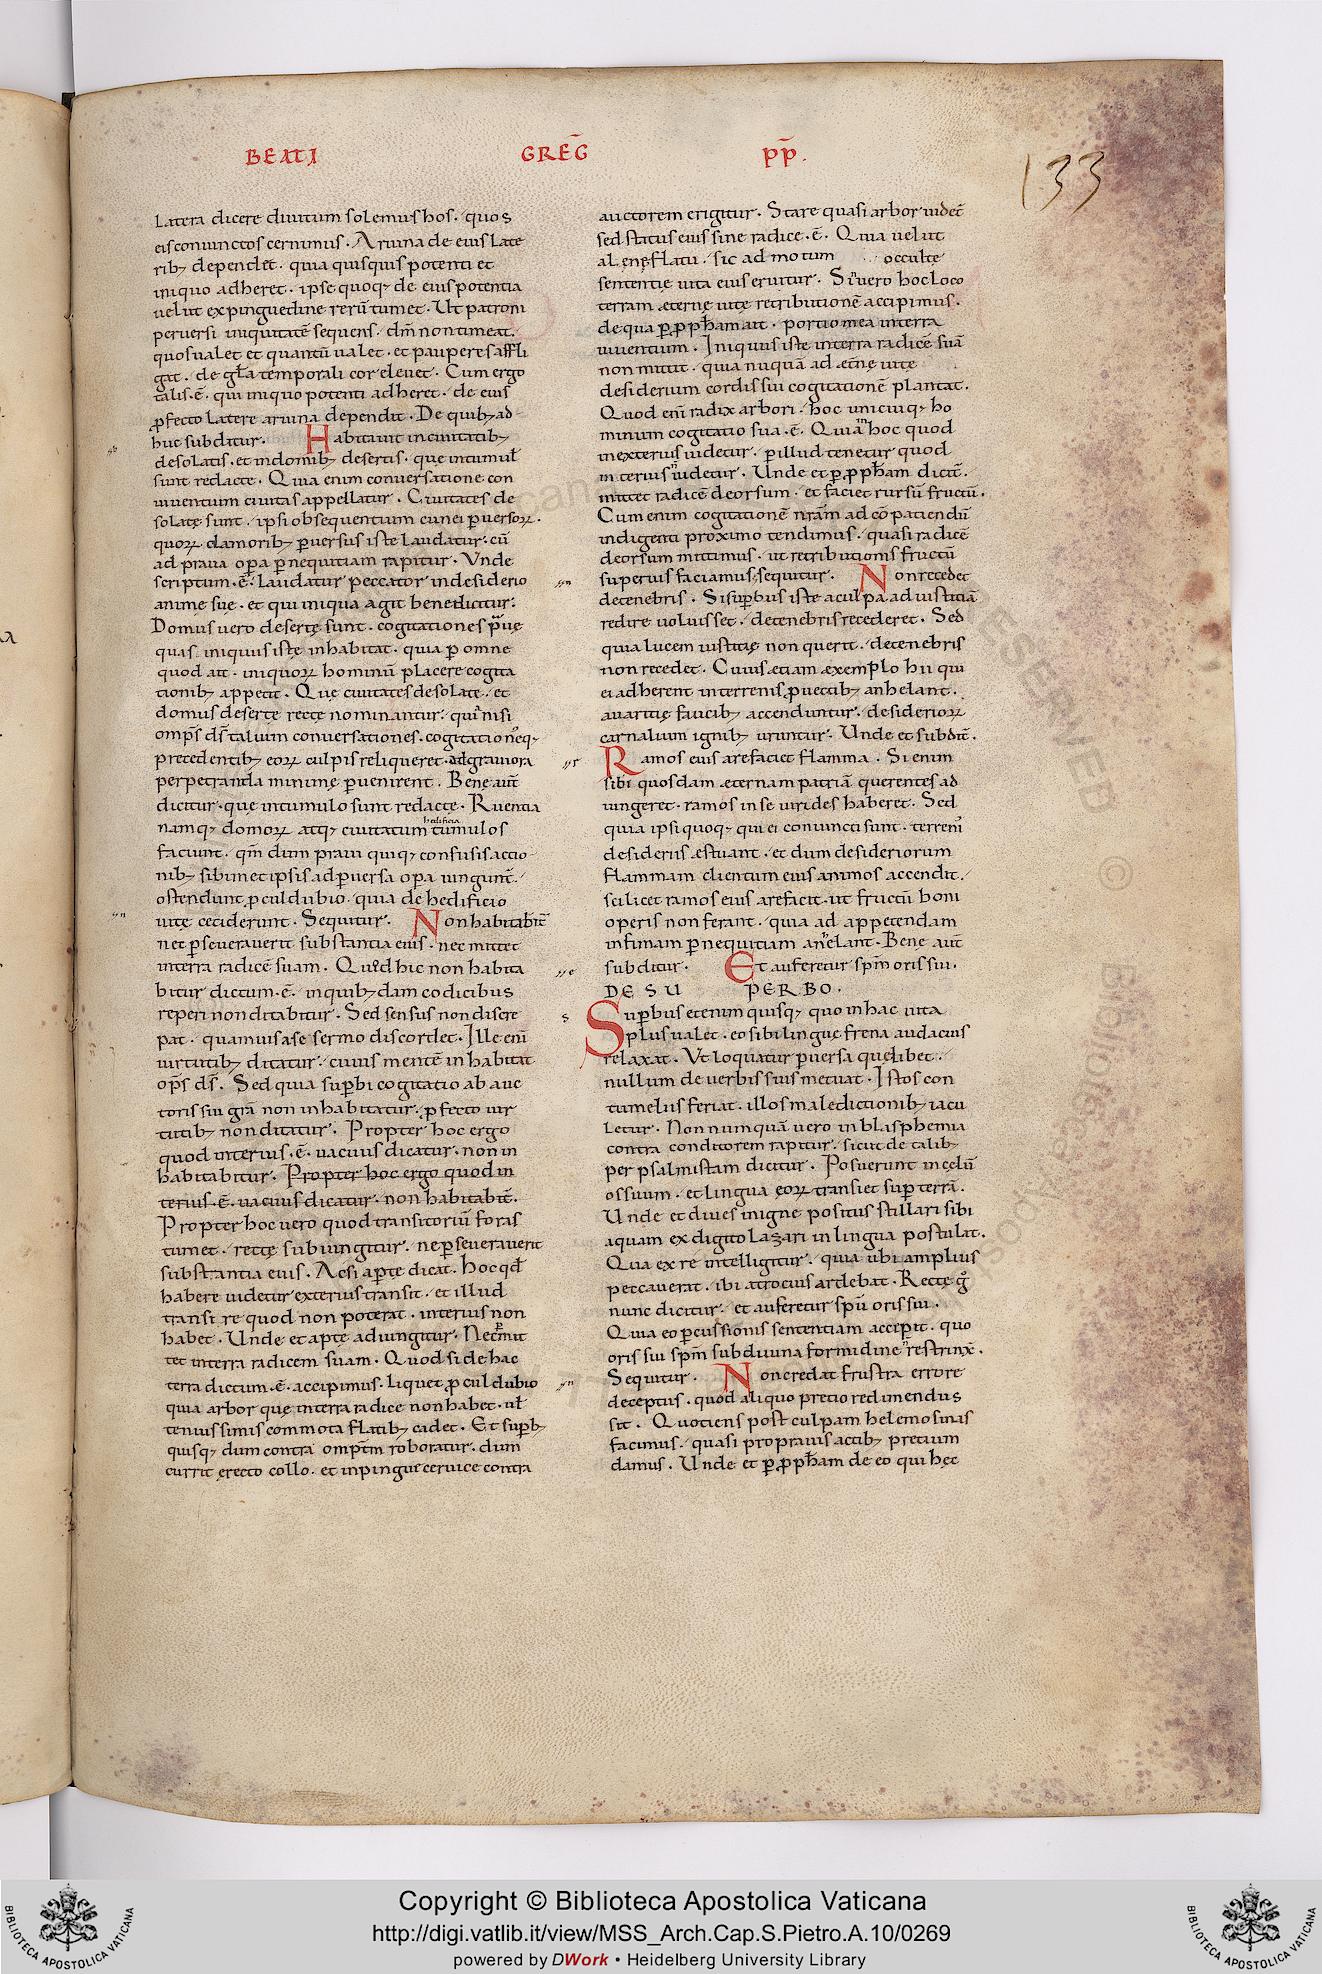 BEATI GREḠ PP̄.
133
Latera dicere divitum solemus hos. quos
eis coniunctos cernimus. Arvina de eius late
rib; dependet. quia quisquis potenti et
iniquo adheret. ipse quoq; de eius potentia
velut ex pinguedine rerū tumet. Ut patroni
perversi iniquitatē sequens. dm̄ non timeat.
quos valet et quantū valet. et pauperes affli
gat. de gl̄a temporali cor elevet. Cum ergo
talis. ē. qui iniquo potenti adheret. de eius
ꝓfecto latere arvina dependit. De quib; ad
huc subditur. Habitavit in civitatib;
desolatis. et in domib; desertis. quę in tumul̄
sunt redacte. Quia enim conversatione con
viventium civitas appellatur. Civitates de
solatę sunt. ipsi obsequentium cunei ꝑversoꝝ.
quoꝝ clamorib; ꝑversus iste laudatur. cū
ad prava oꝑa ꝑ nequitiam rapitur. Unde
scriptum. ē. Laudatur peccator in desiderio
anime sue. et qui iniqua agit benedicitur.
Domus vero desertę sunt. cogitationes pravę
quas iniquus iste inhabitat. quia ꝑ omne
quod ait. iniquoꝝ hominū placere cogita
tionib; appetit. Quę civitates desolatę. et
domus desertę rectę nominantur. quia nisi
omps̄ ds̄ talium conversationes. cogitationesq;
precedentib; eoꝝ culpis reliqueret. ad graviora
perpetranda minime ꝑvenirent. Bene aut̄
dicitur. quę in tumulo sunt redactę. Ruentia
hedificia
namq; domoꝝ atq; civitatum tumulos
faciunt. qm̄ dum pravi quiq; confusis actio
nib; sibimet ipsis ad ꝑversa oꝑa iungunt̄.
ostendunt ꝓcul dubio. quia de hedificio
vitę ceciderunt. Sequitur. Non habitabit̄
nec ꝑseveraverit substantia eius. nec mittet
in terra radicē suam. Quod hic non habita
bitur dictum. ē. in quib;dam codicibus
reperi non ditabitur. Sed sensus non discre
pat. quamvis a se sermo discordet. Ille enī
virtutib; ditatur. cuius mentē inhabitat
ops̄ ds̄. Sed quia suꝑbi cogitatio ab auc
toris sui grā non inhabitatur. ꝓfecto vir
tutib; non ditatur. Propter hoc ergo
quod interius. ē. vacuus dicatur. non in
habitabitur. Propter hoc ergo quod in
terius. ē. vacuus dicatur. non habitabit̄.
Propter hoc vero quod transitoriū foras
tumet. rectę subiungitur. ne ꝑseveraverit
substantia eius. Ac si aꝑte dicat. Hoc qd̄
habere videtur exterius transit. et illud
transire quod non poterat. interius non
habet. Unde et apte adiungitur. Nec mit
tet in terra radicem suam. Quod si de hac
terra dictum. ē. accipimus. liquet ꝓcul dubio
quia arbor quę in terra radice non habet. vl̄
tenuissimis commota flatib; cadet. Et suꝑb;
quisq; dum contra omptm̄ roboratur. dum
currit erecto collo. et in pingui cervice contra
auctorem erigitur. Stare quasi arbor videt̄
sed status eius sine radice. ē. Quia velut
al enę flatu. sic ad motum occultę
sententię vita eius eruitur. Si vero hoc loco
terram æternę vitę retributionē accipimus.
de qua ꝑ ꝓph̄am ait. portio mea in terra
viventium. Iniquus iste in terra radicē suā
non mittit. quia nuquā ad æt̄ne vite
desiderium cordis sui cogitationē plantat.
Quod enī radix arbori. hoc unicuiq; ho
minum cogitatio sua. ē. Quia in hoc quod
in exterius videtur. ꝑ illud tenetur quod
interius n̄ videtur. Unde et ꝑ ꝓph̄am dicit̄.
mittet radicē deorsum. et faciet rursū fructū.
Cum enim cogitationē nr̄am ad cōpatiendū
indigenti proximo tendimus. quasi radicē
deorsum mittimus. ut retributionis fructū
superius faciamus. sequitur. Non recedet
de tenebris. Si suꝑbus iste a culpa ad iustitiā
redire voluisset. de tenebris recederet. Sed
quia lucem iustitię non querit. de tenebris
non recedet. Cuius etiam exemplo hii qui
ei adherent in terrenis ꝓvectib; anhelant.
avaritię faucib; accenduntur. desiderioꝝ
carnalium ignib; uruntur. Unde et subdit̄.
Ramos eius arefaciet flamma. Si enim
sibi quosdam æternam patriā querentes ad
iungeret. ramos in se virides haberet. Sed
quia ipsi quoq; qui ei coniuncti sunt. terreni
desideriis æstuant. et dum desideriorum
flammam clientum eius animos accendit.
scilicet ramos eius arefacit. ut fructū boni
operis non ferant. quia ad appetendam
infimam ꝑ nequitiam anhelant. Bene aut̄
subditur. Et auferetur spm̄ oris sui.
DE SUPERBO.
Suꝑbus etenim quisq; quo in hac vita
plus valet. eo sibi linguę frena audacius
relaxat. Ut loquatur ꝑversa quę libet.
nullum de verbis suis metuat. Istos con
tumeliis feriat. illos maledictionib; iacu
letur. Non numquā vero in blasphemia
contra conditorem rapitur. sicut de talib;
per psalmistam dicitur. Posuerunt in cęlū
os suum. et lingua eoꝝ transiet suꝑ terrā.
Unde et dives in igne positus stillari sibi
aquam ex digito Lazari in lingua postulat.
Qua ex re intelligitur. quia ubi amplius
peccaverat. ibi atrocius ardebat. Rectę g̊
nunc dicitur. et auferetur spū oris sui.
Quia eo ꝑcussionis sententiam acceꝑit. quo
oris sui spm̄ sub divina formidine n̄ restrinx̄.
Sequitur. Non credat frustra errore
deceptus. quod aliquo precio redimendus
sit. Quotiens post culpam helemosinas
facimus. quasi pro pravis actib; pretium
damus. Unde et ꝑ ꝓph̄am de eo qui hęc
Copyright © Biblioteca Apostolica Vaticana
http://digi.vatlib.it/view/MSS_Arch.Cap.S.Pietro.A.10/0269
powered by DWork • Heidelberg University Library
BIBLIOTECA APOSTOLICA VATICANA
BIBLIOTECA APOSTOLICA VATICANA